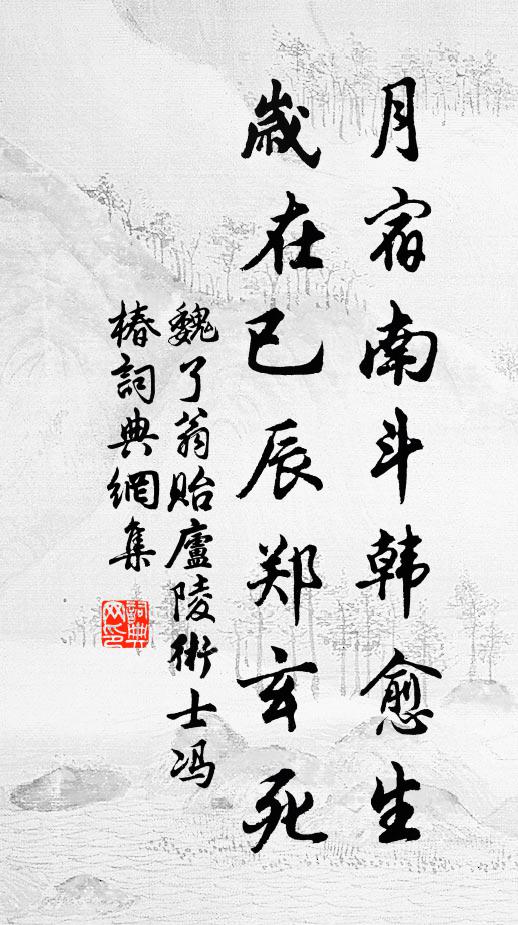 月宿南斗韩愈生
歲在已辰郑玄死
魏了翁貽廬陵術士冯
椿詞典網集
詞典
网印